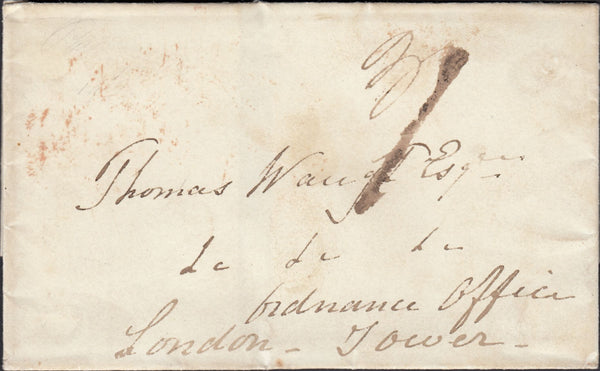 Thomas Waugh Esqre
&c &c &c
Ordnance Office
London - Tower -